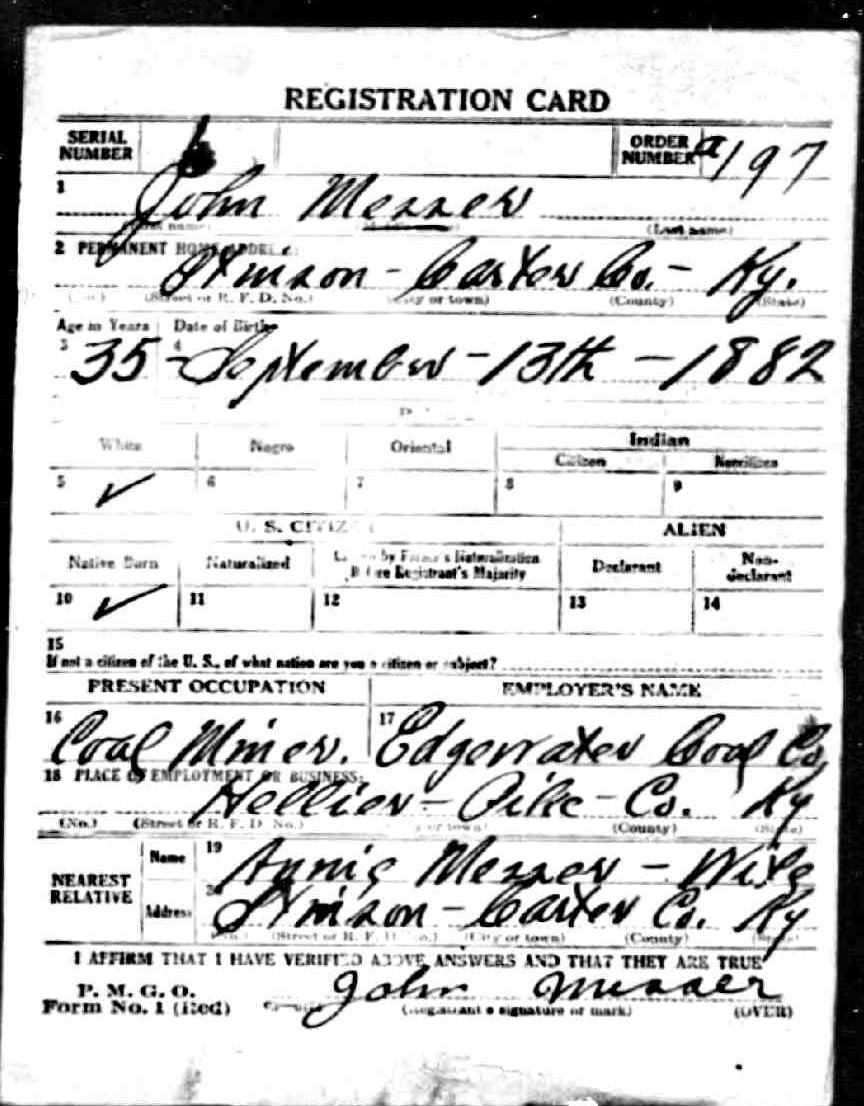 REGISTRATION CARD
SERIAL NUMBER ORDER NUMBER a197
1 John Messer
(Last name)
2 PERMANENT HOME ADDRESS:
Stinson - Carter Co. - Ky.
(No.) (Street or R. F. D. No.) (City or town) (County) (State)
Age in Years Date of Birth
3 35 - 4 September - 13th - 1882
White Negro Oriental Indian
Citizen Noncitizen
5 ✓ 6 7 8 9
U. S. CITIZEN ALIEN
Native Born Naturalized Citizen by Father's Naturalization Before Registrant's Majority Declarant Non-declarant
10 ✓ 11 12 13 14
15
If not a citizen of the U. S., of what nation are you a citizen or subject?
PRESENT OCCUPATION EMPLOYER'S NAME
16 Coal Miner. 17 Edgewater Coal Co
18 PLACE OF EMPLOYMENT OR BUSINESS:
Hellier - Pike - Co. Ky
(No.) (Street or R. F. D. No.) (City or town) (County) (State)
NEAREST RELATIVE
Name 19 Annie Messer - Wife
Address 20 Stinson - Carter Co. Ky
(No.) (Street or R. F. D. No.) (City or town) (County) (State)
I AFFIRM THAT I HAVE VERIFIED ABOVE ANSWERS AND THAT THEY ARE TRUE
P. M. G. O.
Form No. 1 (Red) John Messer
(Registrant's signature or mark) (OVER)